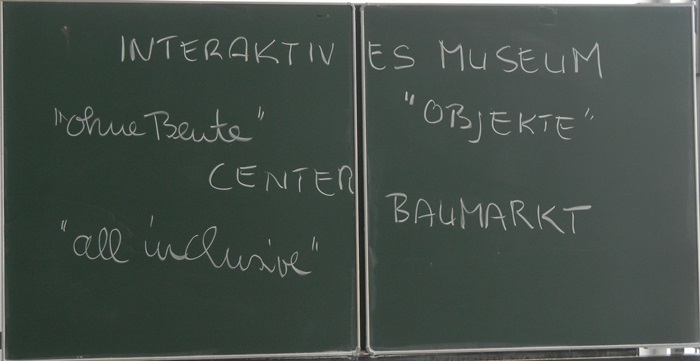 INTERAKTIVES MUSEUM
"ohne Beute" "OBJEKTE"
CENTER BAUMARKT
"all inclusive"